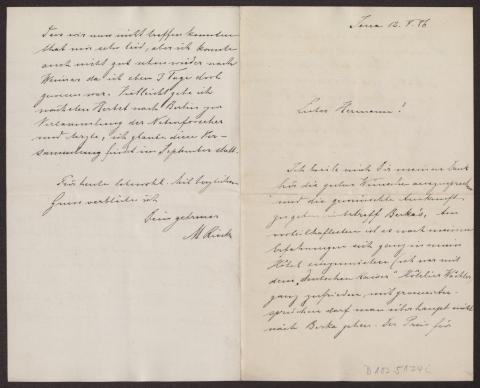 Jena 12. V. 86
Lieber Hermann!
Ich beeile mich Dir meinen Dank
für die guten Wünsche auszusprechen
und die gewünschte Auskunft
zu geben betreff Berka's. Am
vorteilhaftesten ist es nach meinen
Erfahrungen sich ganz in einem
Hôtel einzumiethen, ich war mit
dem "deutschen Kaiser" Hôtelier
ganz zufrieden, mit
darf man überhaupt nicht
nach Berka gehen. Der Preis für
Dass wir uns nicht treffen konnten
that mir sehr leid, aber ich konnte
auch nicht gut schon wieder nach
Weimar da ich eben 3 Tage dort
gewesen war. Vielleicht gehe ich
nächsten Herbst nach Berlin zur
Versammlung der Naturforscher
und Ärzte, ich glaube diese Ver-
sammlung findet im September statt.
Für heute lebewohl. Mit herzlichem
Gruss verbleibe ich
Dein getreuer
M